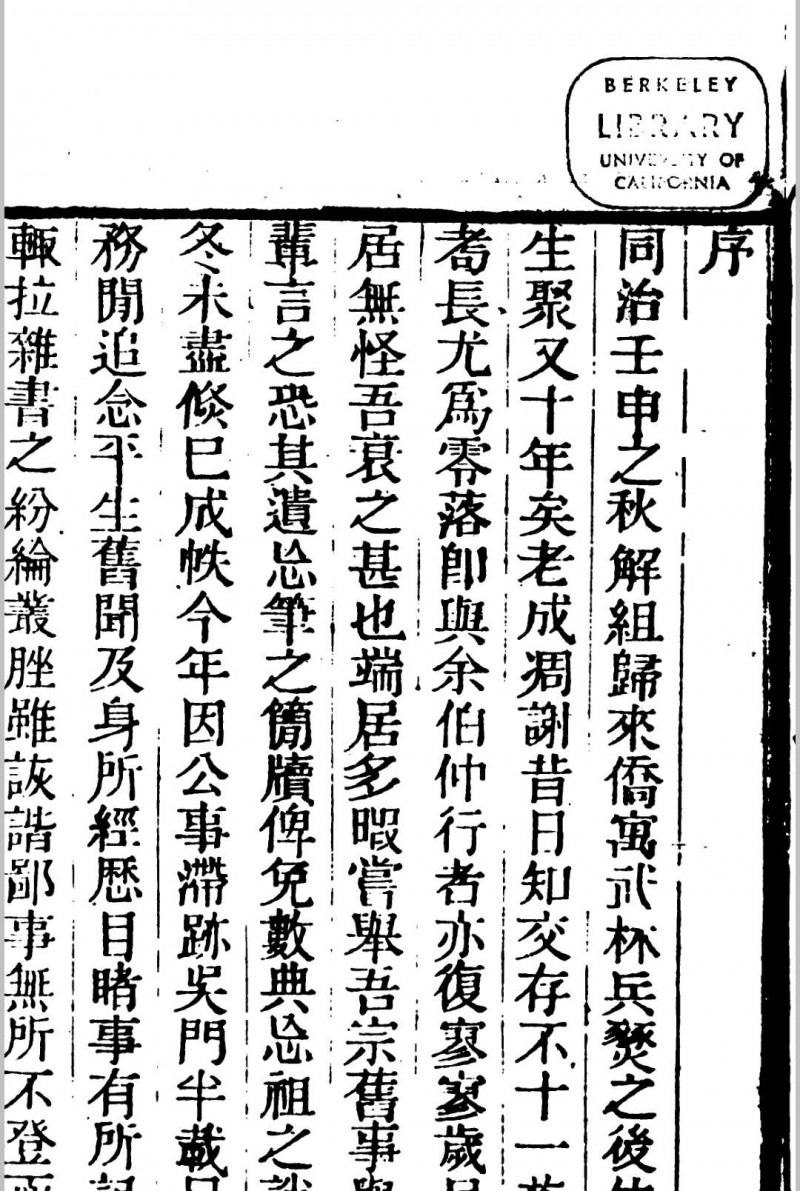 BERKELEY
LIBRARY
UNIVERSITY OF
CALIFORNIA
序
同治壬申之秋解組歸來僑寓武林兵燹之後
生聚又十年矣老成凋謝昔日知交存不十一
耆長尤爲零落卽與余伯仲行者亦復寥寥歲
居無怪吾衰之甚也端居多暇嘗舉吾宗舊事
輩言之恐其遺忘筆之簡牘俾免數典忘祖之
冬未盡倐已成帙今年因公事滯跡吳門半載
務閒追念平生舊聞及身所經歷目睹事有所
輙拉雜書之紛綸叢脞雖詼諧鄙事無所不登